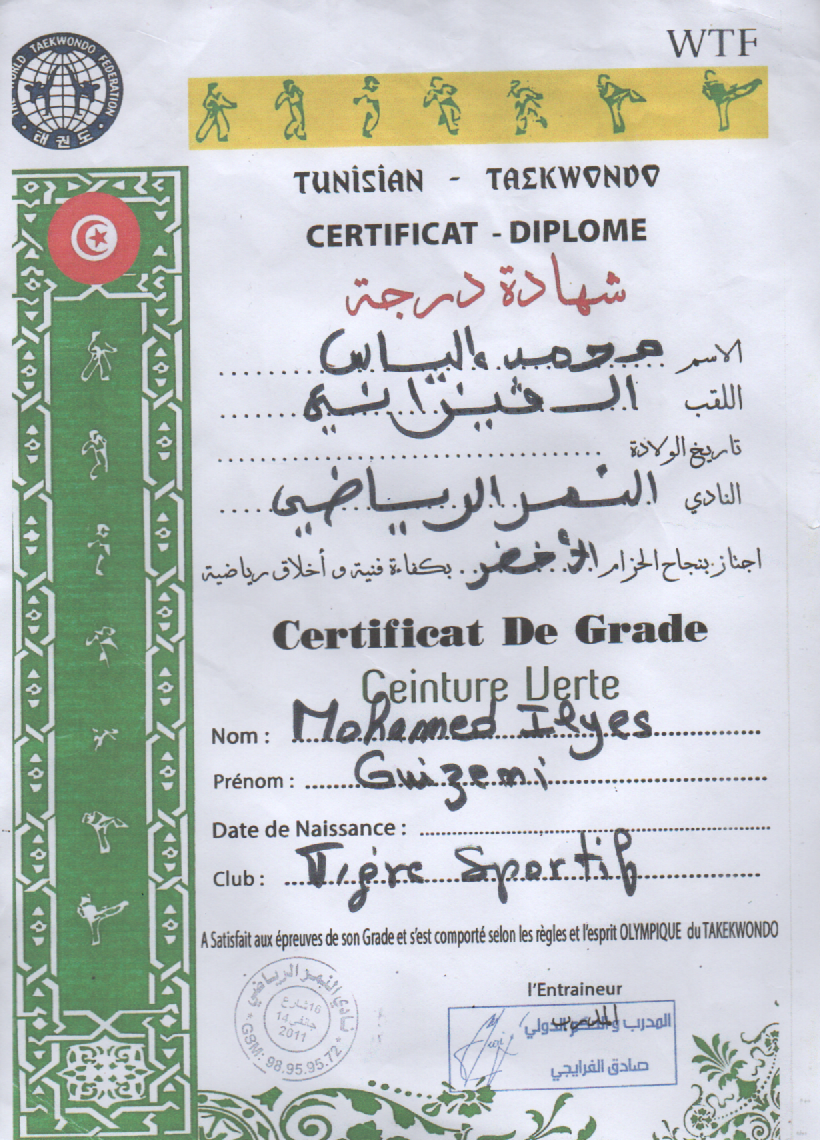 WTF
THE WORLD TAEKWONDO FEDERATION
태권도
TUNISIAN - TAEKWONDO
CERTIFICAT - DIPLOME
شهادة درجة
الاسم محمد الياس
اللقب القيزاني
تاريخ الولادة
النادي النمر الرياضي
اجتاز بنجاح الحزام الأخضر بكفاءة فنية و أخلاق رياضية
Certificat De Grade
Ceinture Verte
Nom : Mohamed Ilyes
Prénom : Guizemi
Date de Naissance :
Club : Tigre Sportif
A Satisfait aux épreuves de son Grade et s'est comporté selon les règles et l'esprit OLYMPIQUE du TAKEKWONDO
نادي النمر الرياضي
16 شارع
14 جنفي
2011
GSM: 98.95.95.72
l'Entraineur
المدرب و الدولي
صادق الفرايجي